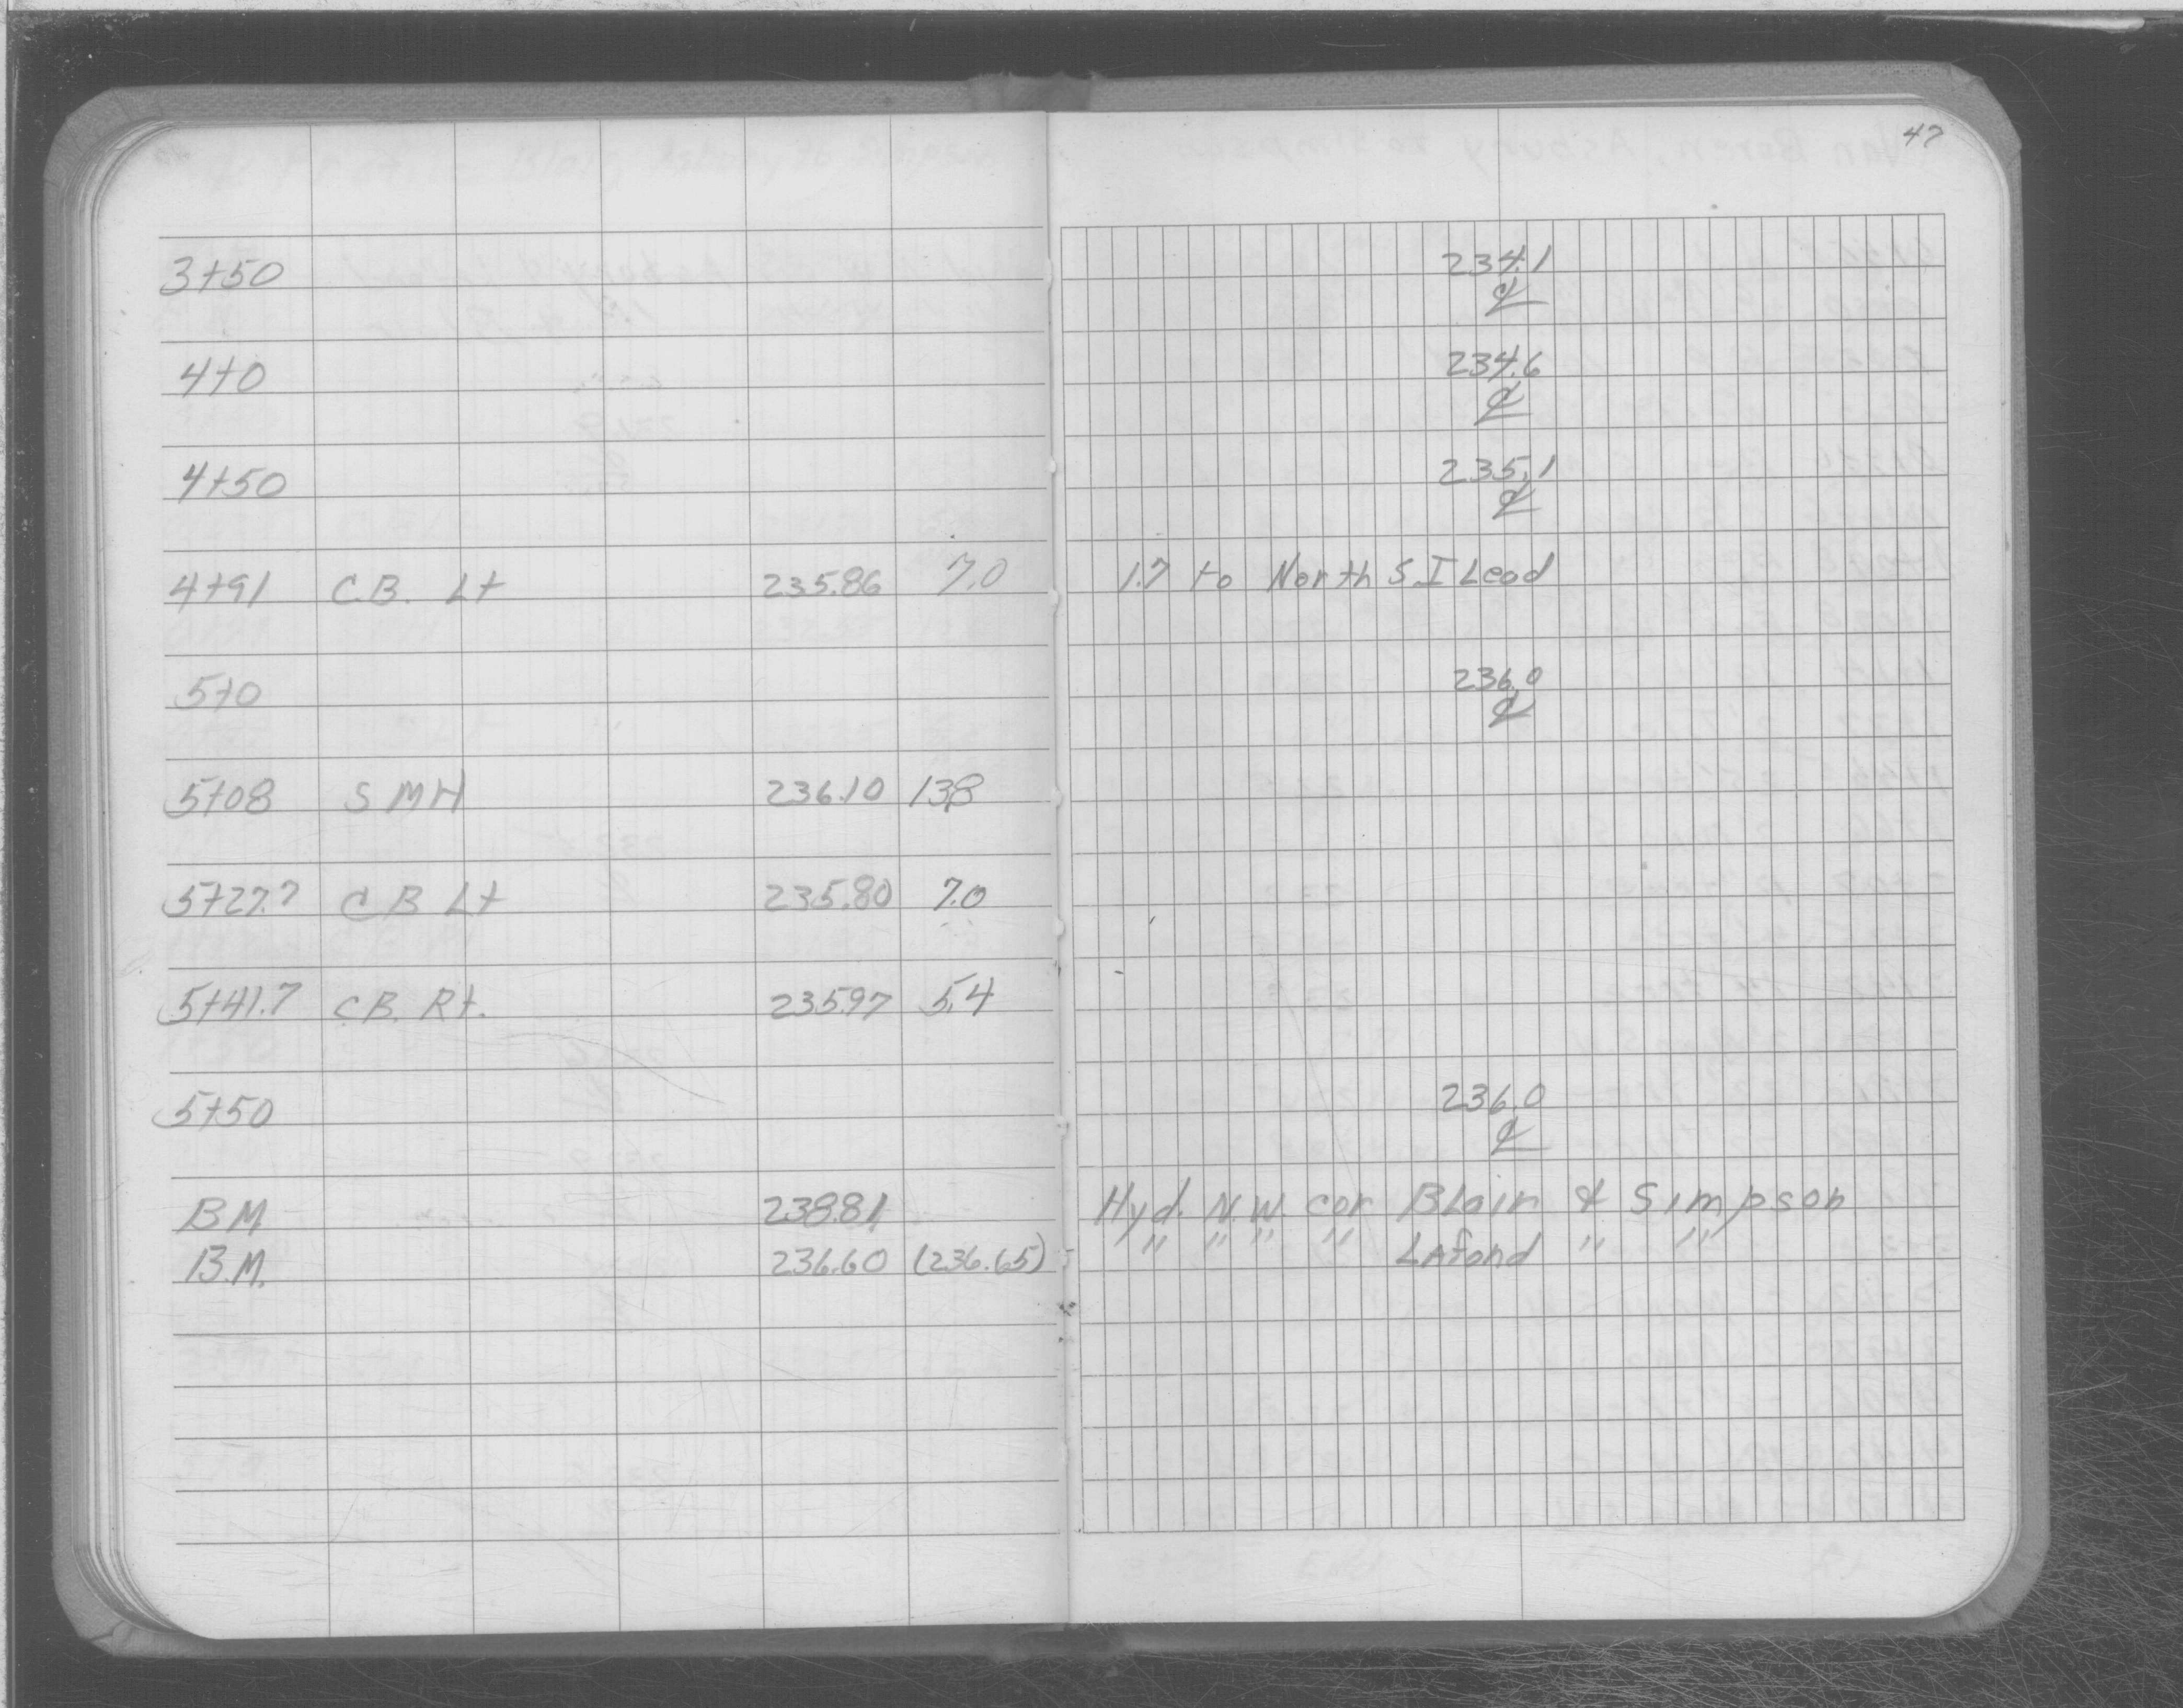 47
3+50 234.1
℄
4+0 234.6
℄
4+50 235.1
℄
4+91 C.B. Lt 235.86 7.0 1.7 to North S I Lead
5+0 236.0
℄
5+08 S M H 236.10 13.8
5+27.7 C B Lt 235.80 7.0
5+41.7 C B. Rt. 235.97 5.4
5+50 236.0
℄
B M 238.81 Hyd. N.W. cor BLair & Simpson
B.M. 236.60 (236.65) " " " " LAfond " "